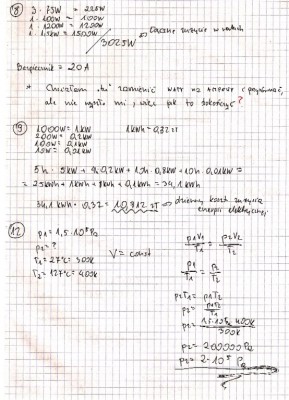 18
3 · 75W = 225W
1 · 100W = 100W
1 · 1200W = 1200W
1 · 1,5kW = 1500W
3025W
Łączne zużycie w watach
Bezpiecznik = 20A
* Chciałam zamienić waty na ampery i porównać,
ale nie wyszło mi, więc jak to dokończyć?
19
1000W = 1kW
1kWh - 0,32 zł
200W = 0,2kW
100W = 0,1kW
10W = 0,01kW
5h · 5kW + · 0,2kW + 10h · 0,8kW + 10h · 0,01kW =
= 25kWh + 1kWh + 8kWh + 0,1kWh = 34,1kWh
34,1 kWh · 0,32 = 10,912 zł dzienny koszt zużycia
energii elektrycznej
12
p1 = 1,5 · 10⁵ Pa
p2 = ?
T1 = 27°C = 300K
T2 = 127°C = 400K
V = const
p1V1/T1 = p2V2/T2
p1/T1 = p2/T2
p2T1 = p1T2
p2 = p1T2/T1
p2 = 1,5 · 10⁵Pa · 400K/300K
p2 = 200000 Pa
p2 = 2 · 10⁵ Pa